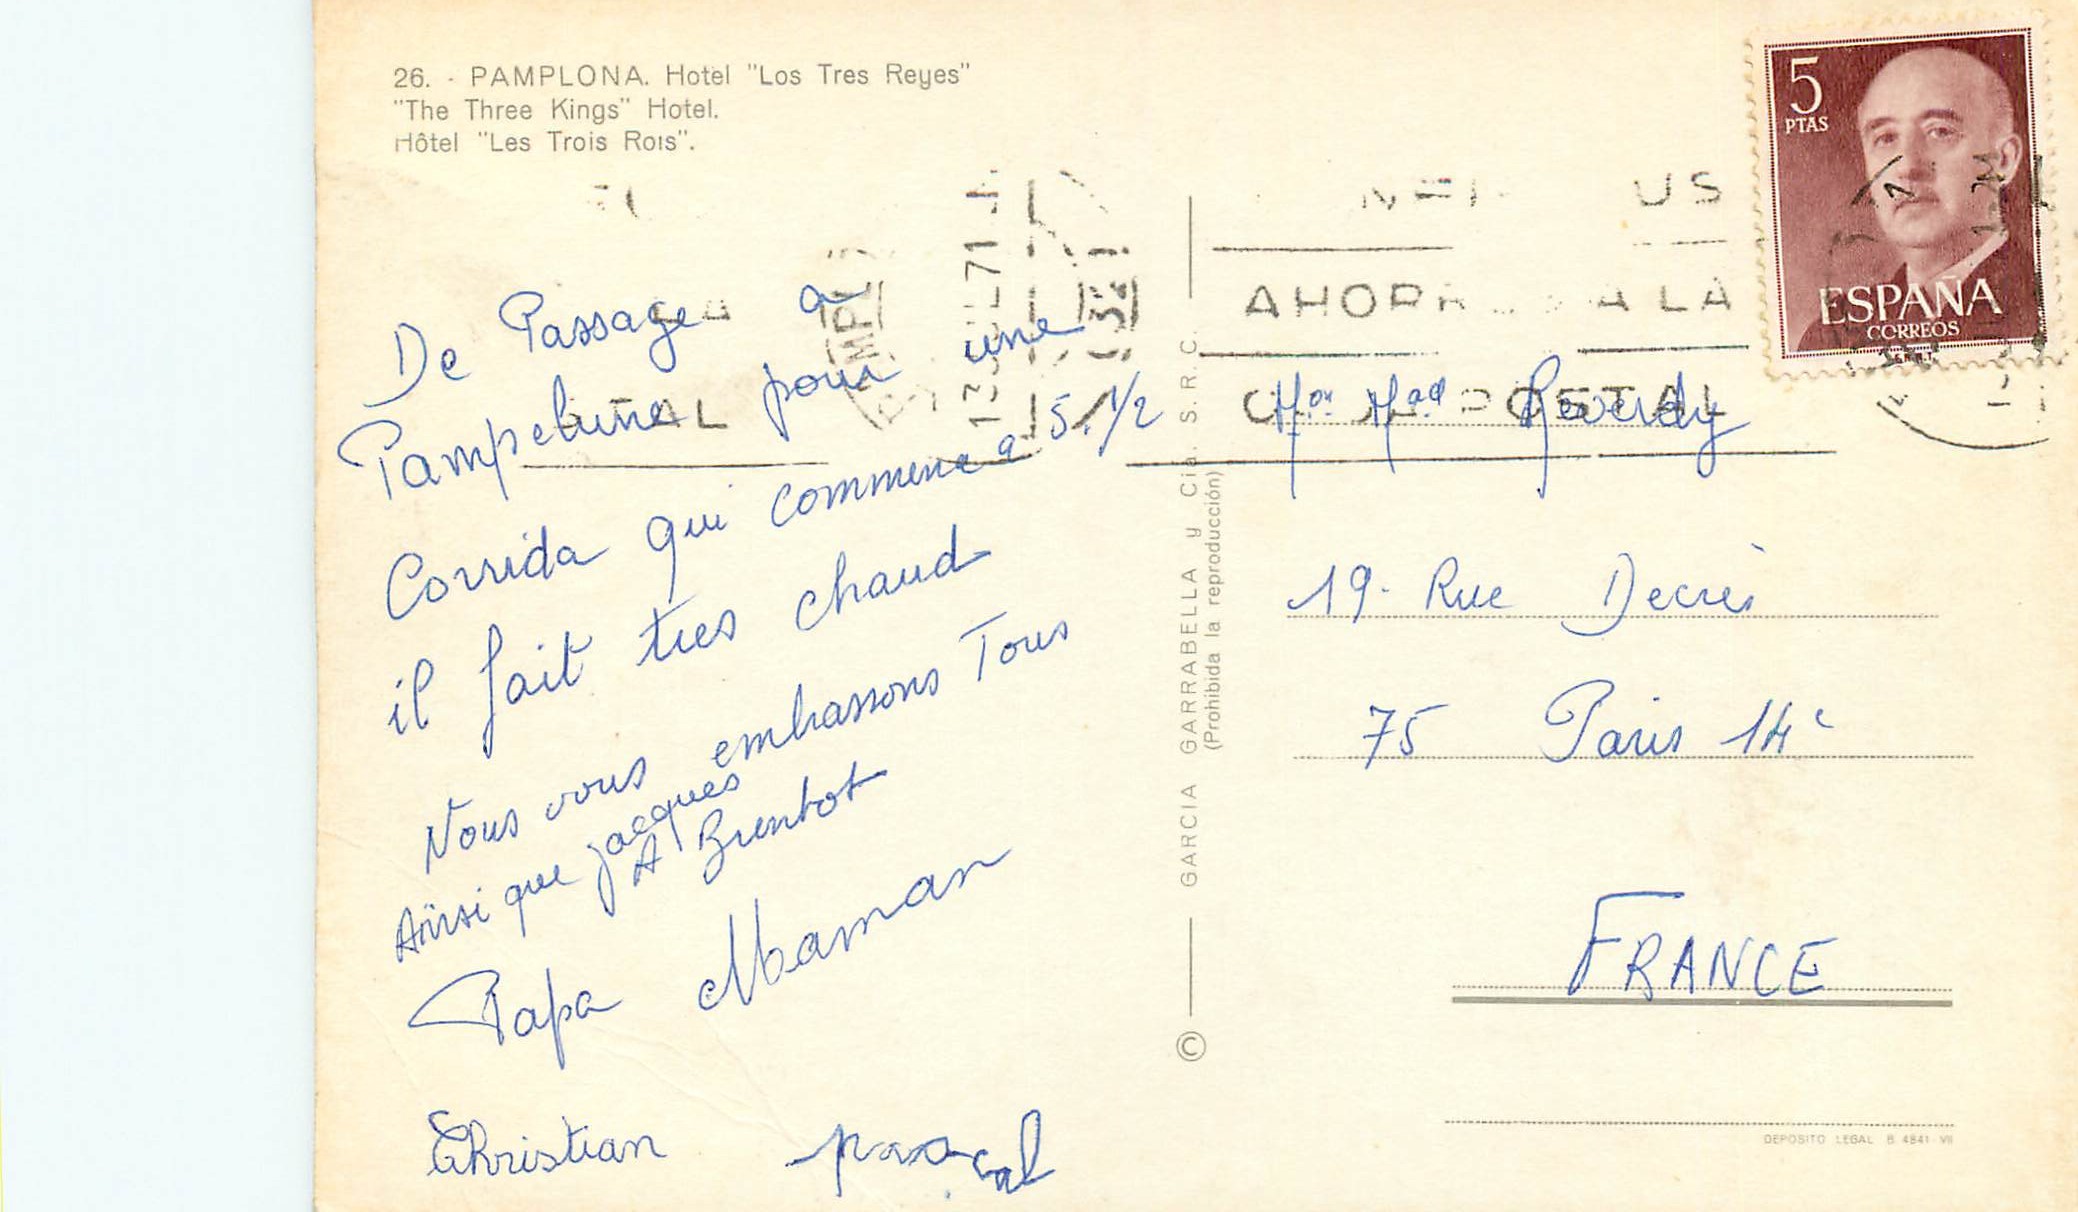 26. - PAMPLONA. Hotel "Los Tres Reyes"
"The Three Kings" Hotel.
Hôtel "Les Trois Rois".
De Passage a
Pampelune pour une
Corrida qui commence a 5.½
il fait tres chaud
Nous vous embrassons Tous
Ainsi que jacques
A Bientot
Papa Maman
Christian pascal
GARCIA GARRABELLA y Cia. S.R.C.
(Prohibida la reproducción)
©
5
PTAS
ESPAÑA
CORREOS
US
A LA
POSTAL
Mon Mad Reverdy
19. Rue Decrès
75 Paris 14e
FRANCE
DEPOSITO LEGAL B. 4841-VII